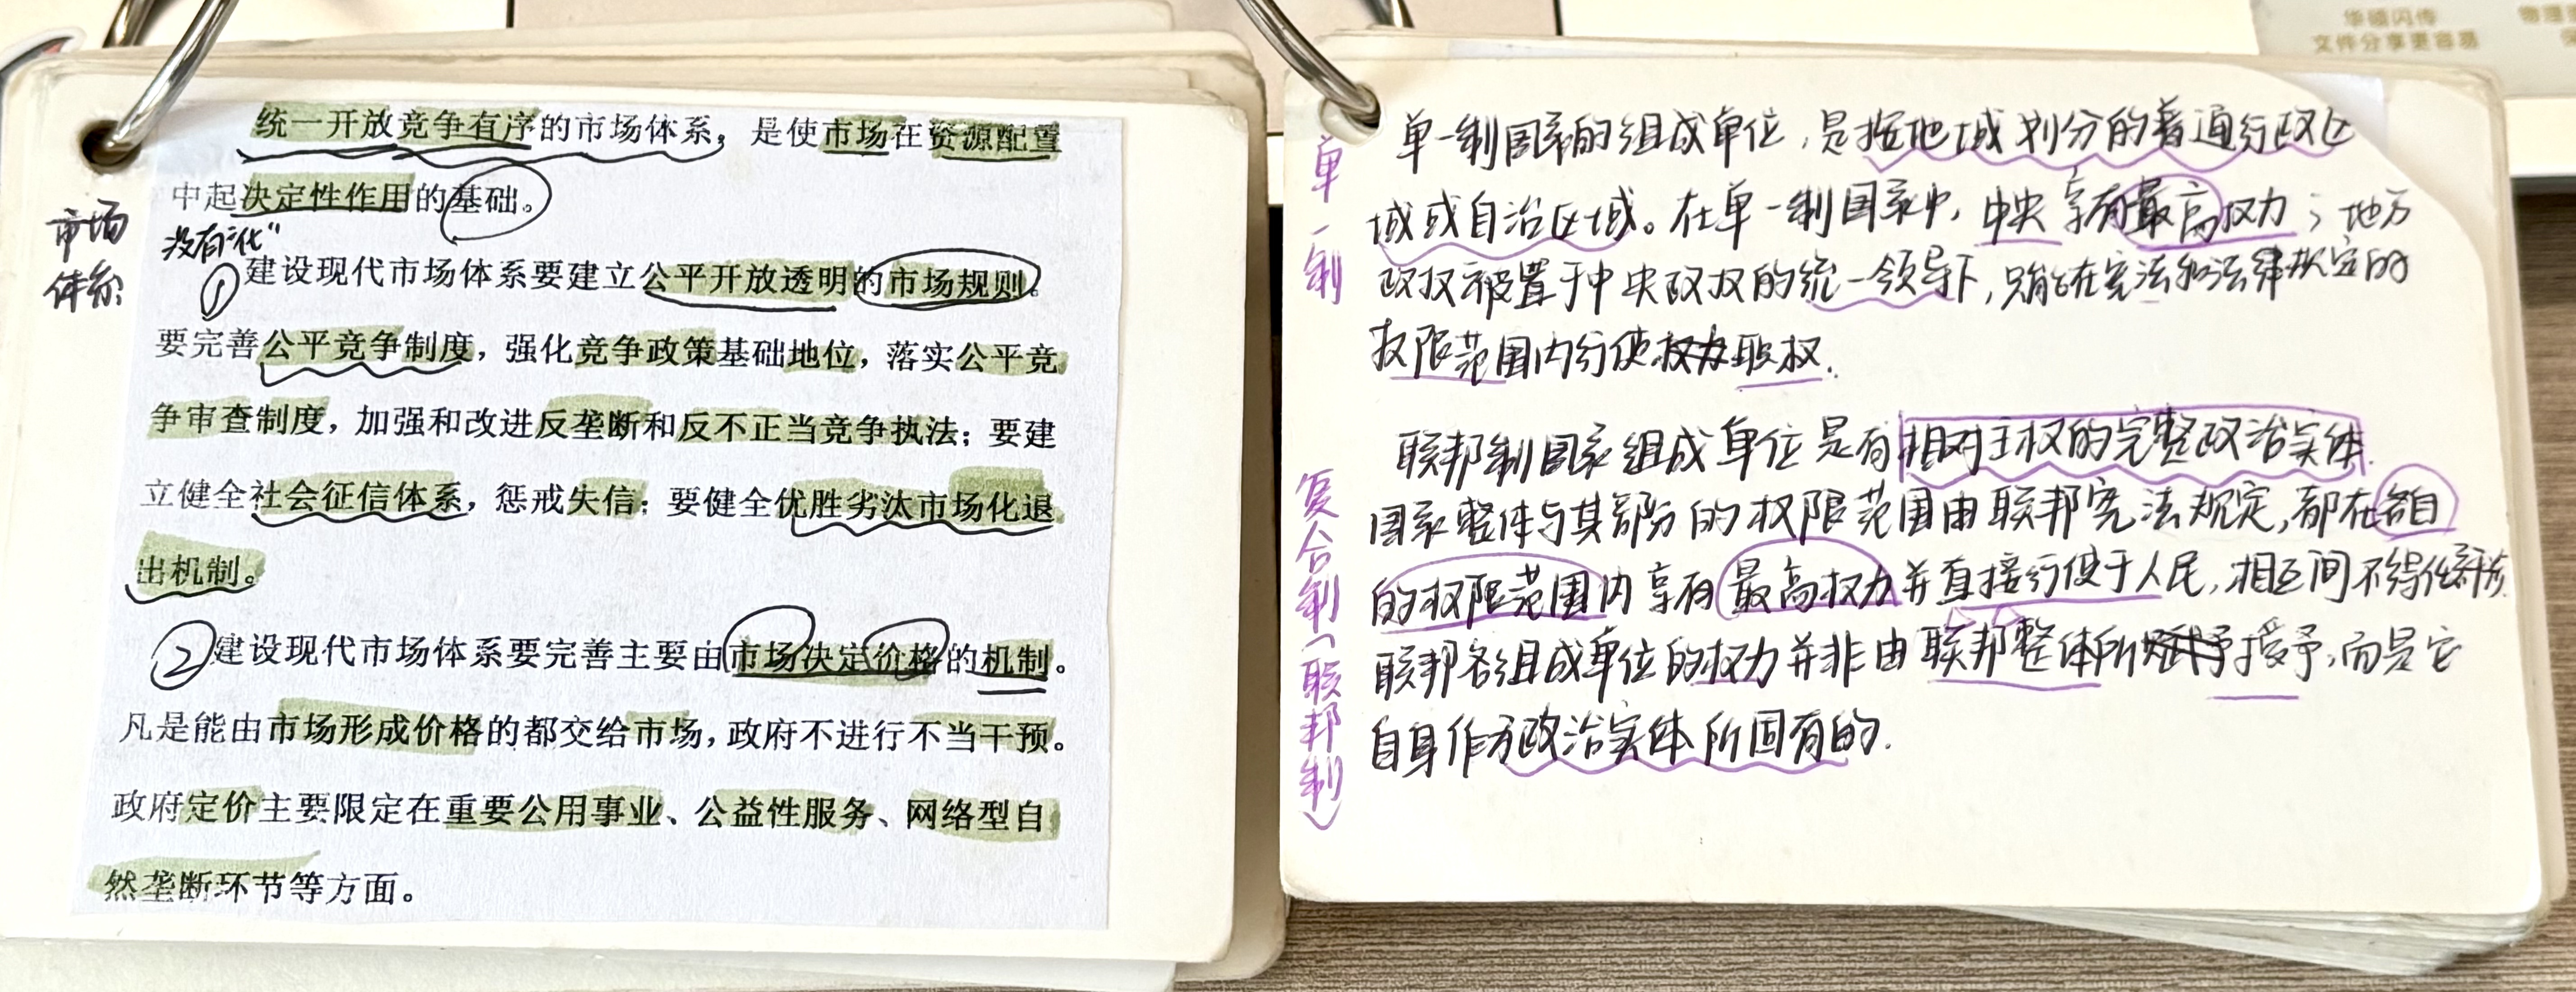 华硕闪传
文件分享更容易
统一开放竞争有序的市场体系，是使市场在资源配置
中起决定性作用的基础。
市场
体系
没有"化"
①建设现代市场体系要建立公平开放透明的市场规则。
要完善公平竞争制度，强化竞争政策基础地位，落实公平竞
争审查制度，加强和改进反垄断和反不正当竞争执法；要建
立健全社会征信体系，惩戒失信；要健全优胜劣汰市场化退
出机制。
②建设现代市场体系要完善主要由市场决定价格的机制。
凡是能由市场形成价格的都交给市场，政府不进行不当干预。
政府定价主要限定在重要公用事业、公益性服务、网络型自
然垄断环节等方面。
单一制
单一制国家的组成单位，是按地域划分的普通行政区
域或自治区域。在单一制国家中，中央享有最高权力；地方
政权被置于中央政权的统一领导下，只能在宪法和法律规定的
权限范围内行使职权.
复合制（联邦制）
联邦制国家组成单位是有相对主权的完整政治实体.
国家整体与其部分的权限范围由联邦宪法规定，都在各自
的权限范围内享有最高权力并直接行使于人民，相互间不得任意
联邦各组成单位的权力并非由联邦整体所授予，而是它
自身作为政治实体所固有的.